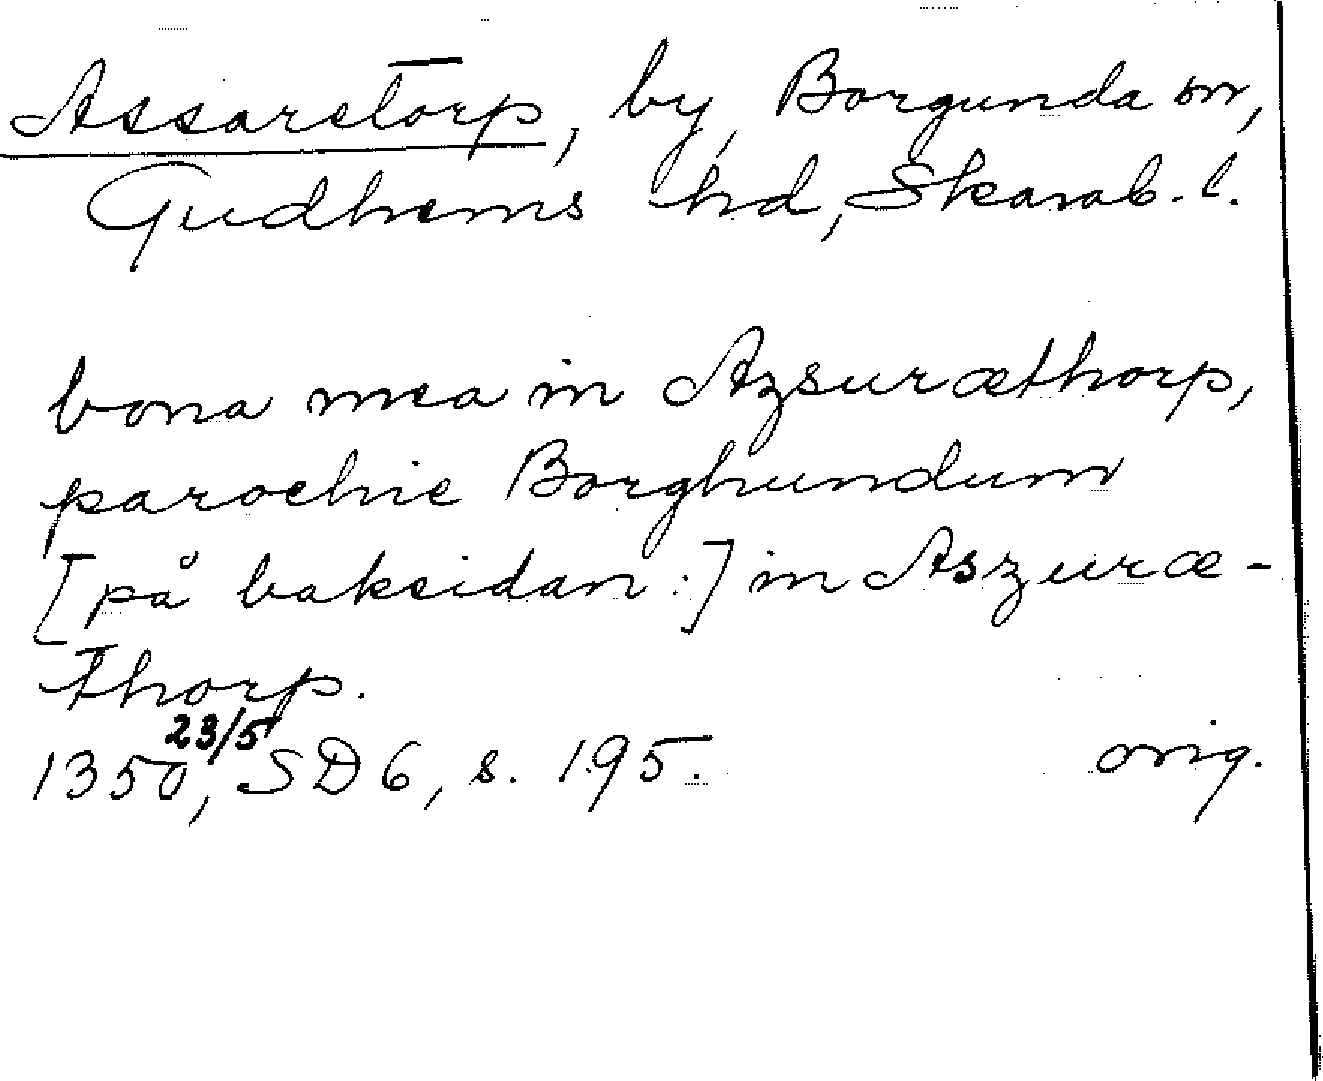 Assarstorp, by, Borgunda sn,
Gudhems hd, Skarab. l.
bona mea in Azsuræthorp,
parochie Borghundum
[på baksidan:] in Aszuræ-
thorp.
1350 23/5, SD 6, s. 195. orig.